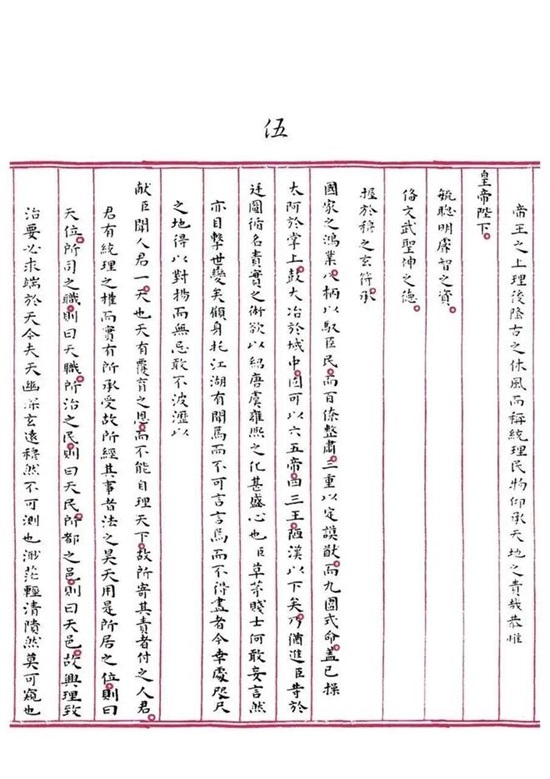 伍
帝王之上理後隆古之休風而稱統理民物仰承天地之責哉恭惟
皇帝陛下
毓聰明睿智之資
俻文武聖神之德
握於穆之玄符承
國家之鴻業八柄以馭臣民而百僚整肅三重以定謨猷而九圍式命蓋已操
太阿於掌上鼓大冶於域中固可以六五帝四三王陋漢以下矣乃猶進臣等於
廷圖循名責實之術欲以紹唐虞雍熙之化甚盛心也臣草茅賤士何敢妄言然
亦目擊世變矣顧身托江湖有聞焉而不可言言焉而不得盡者今幸處咫尺
之地得以對揚而無忌敢不披瀝以
獻臣聞人君一天也天有覆育之恩而不能自理天下故所寄其責者付之人君
君有統理之權而實有所承受故所經其事者法之昊天用是所居之位則曰
天位所司之職則曰天職所治之民則曰天民所都之邑則曰天邑故興理致
治要必求端於天今夫天幽深玄遠穆然不可測也渺茫輕清聵然莫可窺也